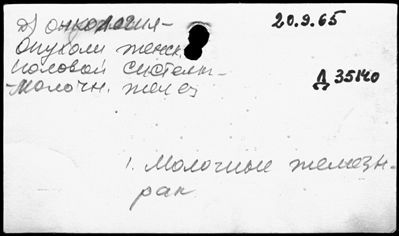 д) онкология-
Опухоли женск.
половой системы-
молочн. желез
20.9.65
Д 35140
1. Молочные железы-
рак